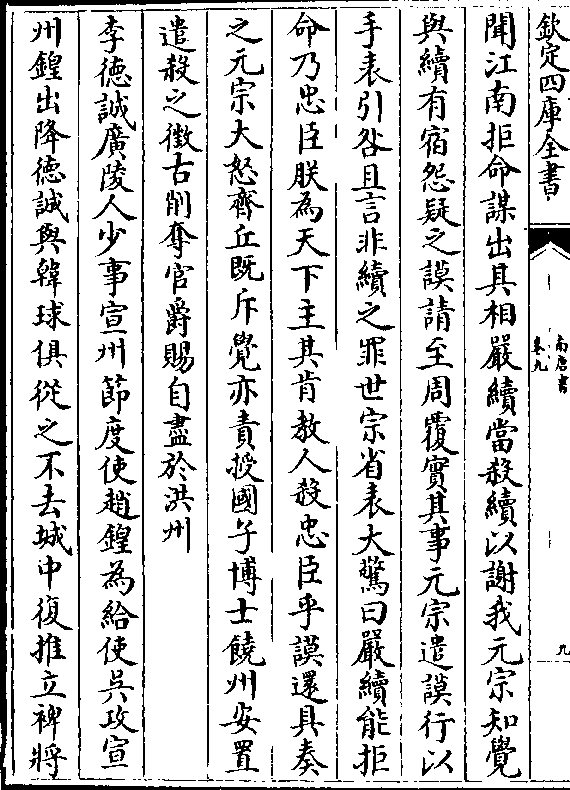 欽定四庫全書
南唐書
卷九
九
聞江南拒命謀出其相嚴續當殺續以謝我元宗知覺
與續有宿怨疑之謨請至周覆實其事元宗遣謨行以
手表引咎且言非續之罪世宗省表大驚曰嚴續能拒
命乃忠臣朕為天下主其肯教人殺忠臣乎謨還具奏
之元宗大怒齊丘既斥覺亦責授國子博士饒州安置
遣殺之徵古削奪官爵賜自盡於洪州
李德誠廣陵人少事宣州節度使趙鍠為給使吳攻宣
州鍠出降德誠與韓球俱從之不去城中復推立裨將